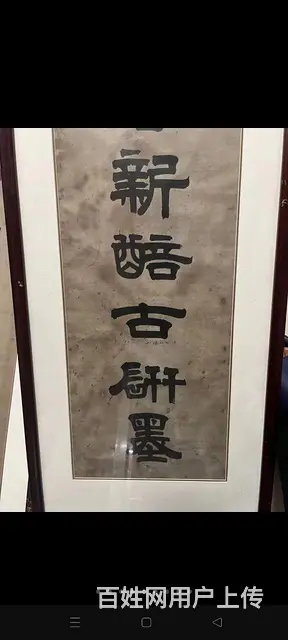 新醅古研墨
百姓网用户上传